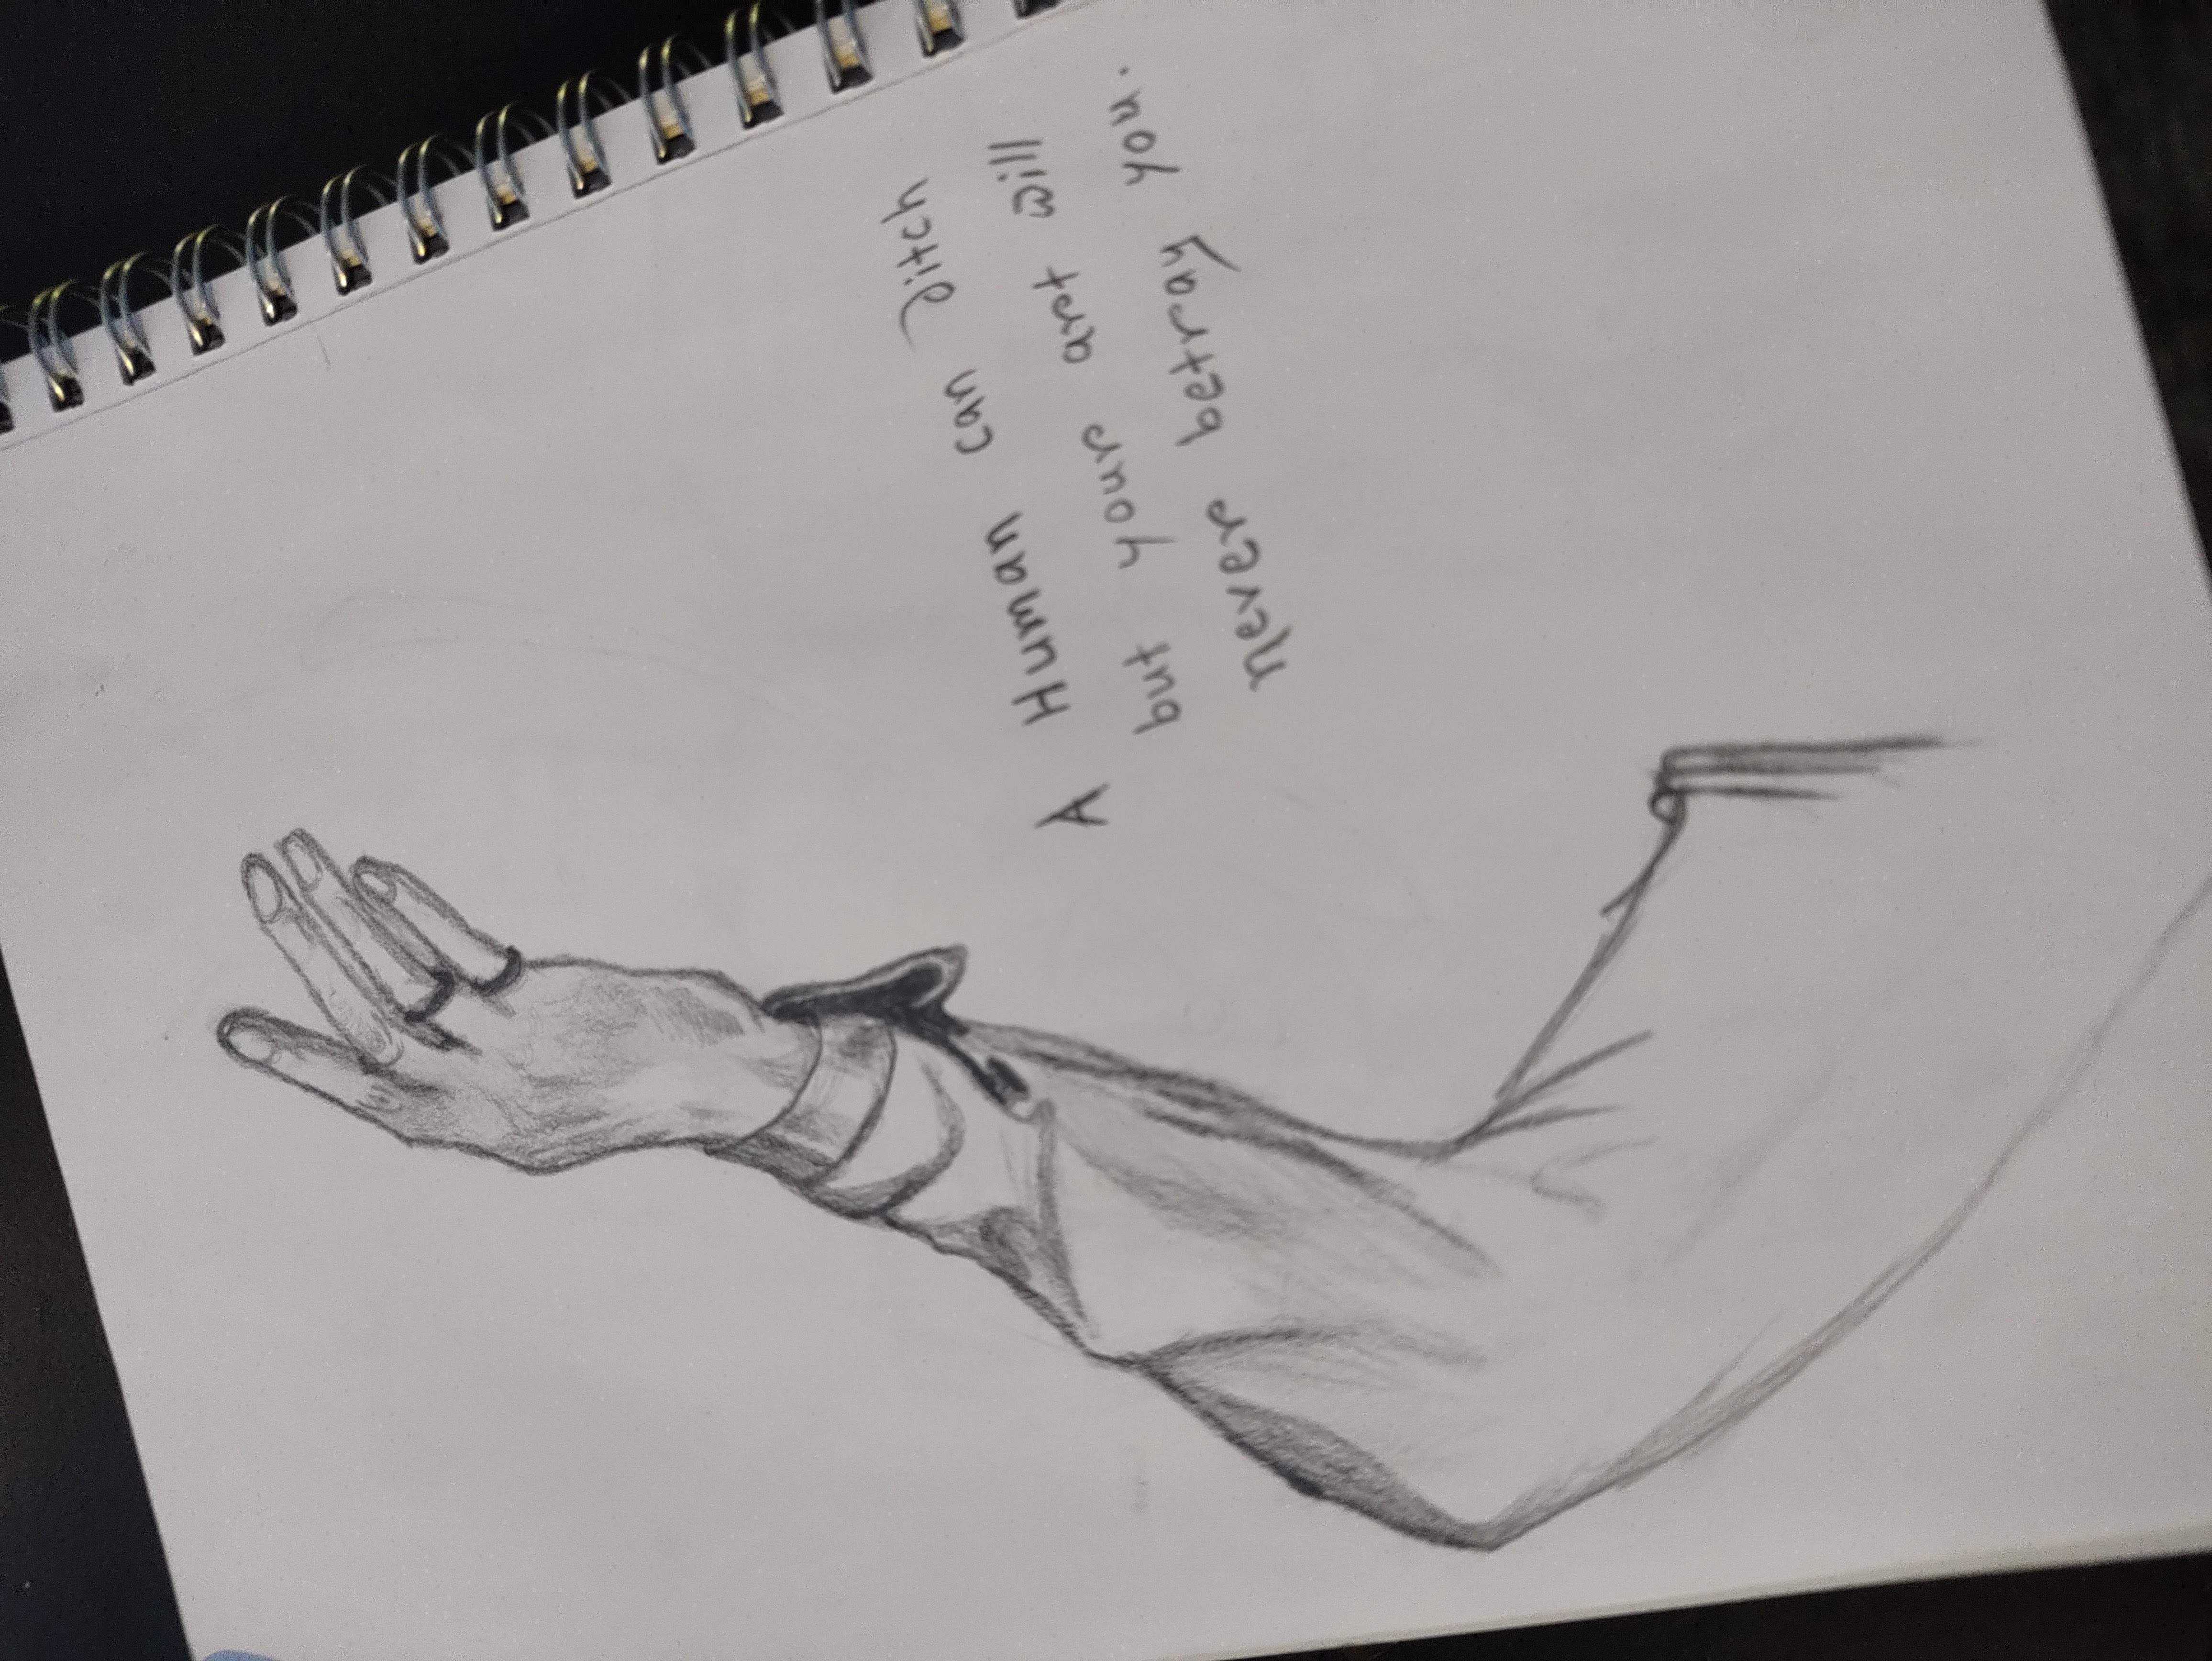 A Human can ditch
but your art will
never betray you.